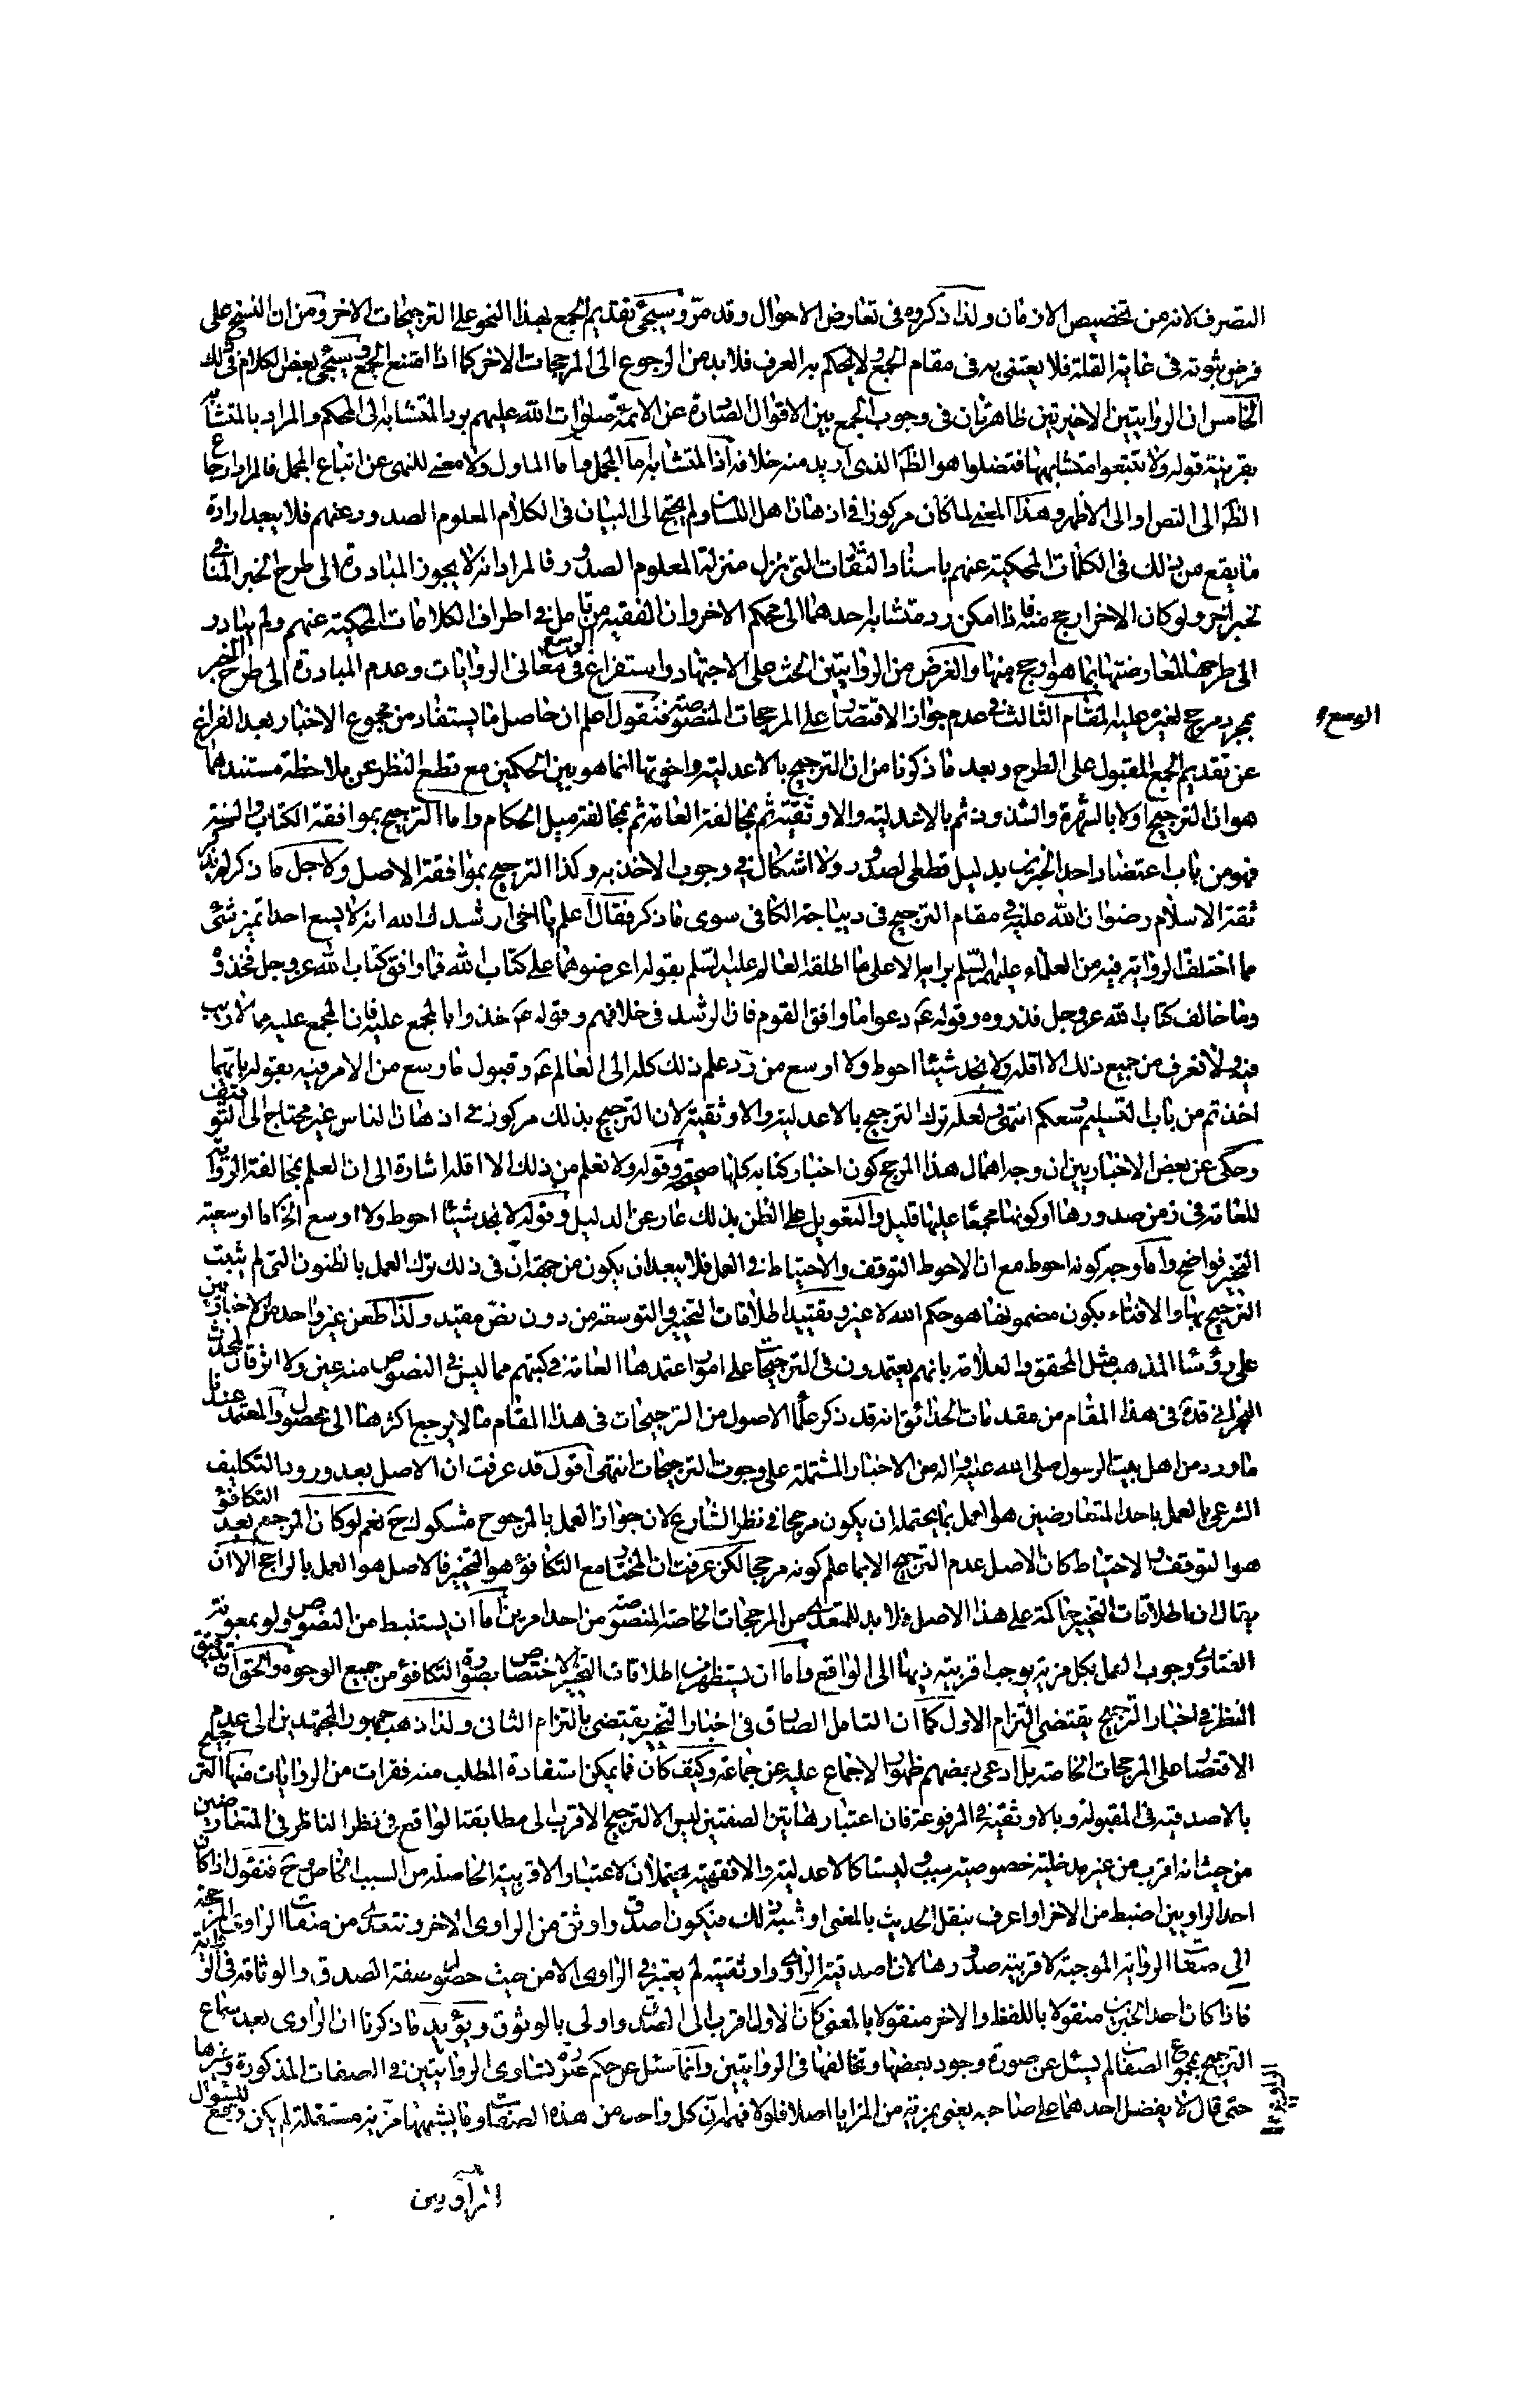 التصرف لانه من تخصيص الازمان ولذا ذكروه فى تعارض الاحوال وقد مرّ وسيجئ تقديم الجمع بهذا النحو على الترجيحات الاخر ومن ان النسخ على
فرض ثبوته فى غاية القلة فلا يعتنى به فى مقام الجمع ولا يحكم به العرف فلا بد من الرجوع الى المرجحات الاخر كما اذا امتنع الجمع وسيجئ بعض الكلام فى ذلك
الخامس ان الروايتين الاخيرتين ظاهرتان فى وجوب الجمع بين الاقوال الصادرة عن الائمة صلوات الله عليهم برد المتشابه الى المحكم والمراد بالمتشابه
بقرينة قوله ولا تتبعوا متشابهها فتضلوا هو الظ الذى اريد منه خلافه اذ المتشابه اما المجمل واما الماول ولا معنى للنهى عن اتباع المجمل فالمراد ارجاع
الظ الى النص او الى الاظهر وهذا المعنى لما كان مركوزا فى اذهان اهل اللسان ولم يحتج الى البيان فى الكلام المعلوم الصدور عنهم فلا يبعد ارادة
ما يقع من ذلك فى الكلمات المحكية عنهم باسناد الثقات التى نزل منزلة المعلوم الصدور فالمراد انه لا يجوز المبادرة الى طرح الخبر المنافى
لخبر اخر ولو كان الاخر ارجح منه اذا امكن رد متشابه احدهما الى محكم الاخر وان الفقيه من تامل فى اطراف الكلامات المحكية عنهم ولم يبادر
الى طرحها لمعارضتها بما هو ارجح منها والغرض من الروايتين الحث على الاجتهاد واستفراغ الوسع فى معانى الروايات وعدم المبادرة الى طرح الخبر
بمجرد مرجح لغيره عليه المقام الثالث فى عدم جواز الاقتصار على المرجحات المنصوصة فنقول اعلم ان حاصل ما يستفاد من مجموع الاخبار بعد الفراغ
الوسع
عن تقديم الجمع المقبول على الطرح وبعد ما ذكرنا من ان الترجيح بالاعدلية واخوتها انما هو بين الحكمين مع قطع النظر عن ملاحظة مستندهما
هو ان الترجيح اولا بالشهرة والشذوذ ثم بالاعدلية والاوثقية ثم بمخالفة العامة ثم بمخالفة ميل الحكام واما الترجيح بموافقة الكتاب والسنة
فهو من باب اعتضاد احد الخبرين بدليل قطعى الصدور ولا اشكال فى وجوب الاخذ به وكذا الترجيح بموافقة الاصل ولاجل ما ذكر لم يذكر
ثقة الاسلام رضوان الله عليه فى مقام الترجيح فى ديباجة الكافى سوى ما ذكر فقال اعلم يا اخى ارشدك الله انه لا يسع احدا تميز شئ
مما اختلف الرواية فيه من العلماء عليهم السلم برايه الا على ما اطلقه العالم عليه السلم بقوله اعرضوهما على كتاب الله فما وافق كتاب الله عز وجل فخذوه
وما خالف كتاب الله عز وجل فذروه وقوله ع دعوا ما وافق القوم فان الرشد فى خلافهم وقوله ع خذوا بالمجمع عليه فان المجمع عليه مما لا ريب
فيه ولا نعرف من جميع ذلك الا اقله ولا نجد شيئا احوط ولا اوسع من رد علم ذلك كله الى العالم ع وقبول ما وسع من الامر فيه بقوله بايهما
اخذتم من باب التسليم وسعكم انتهى ولعله ترك الترجيح بالاعدلية والاوثقية لان الترجيح بذلك مركوز فى اذهان الناس غير محتاج الى التوقيف
وحكى عن بعض الاخباريين ان وجه اهمال هذا المرجح كون اخبار كتابه كلها صحيحة وقوله ولا نعلم من ذلك الا اقله اشارة الى ان العلم بمخالفة الرواية
للعامة فى زمن صدورها او كونها مجمعا عليها قليل والتعويل على الظن بذلك عار عن الدليل وقوله لا نجد شيئا احوط ولا اوسع الخ اما اوسعية
التخيير فواضح واما وجه كونه احوط مع ان الاحوط التوقف والاحتياط فى العمل فلا يبعد ان يكون من جهة ان فى ذلك ترك العمل بالظنون التى لم يثبت
الترجيح بها والافتاء بكون مضمونها هو حكم الله لا غير وتقييد اطلاقات التخيير والتوسعة من دون نص مقيد ولذا طعن غير واحد من الاخباريين
على رؤسا المذهب مثل المحقق والعلامة بانهم يعتمدون فى الترجيحات على امور اعتمدها العامة فى كتبهم مما ليس فى النصوص منه عين ولا اثر قال المحدث
البحرانى قده فى هذا المقام من مقدمات الحدائق انه قد ذكر علما الاصول من الترجيحات فى هذا المقام ما لا يرجع اكثرها الى محصول والمعتمد عندنا
ما ورد من اهل بيت الرسول صلى الله عليه واله من الاخبار المشتملة على وجوه الترجيحات انتهى اقول قد عرفت ان الاصل بعد ورود التكليف
الشرعى بالعمل باحد المتعارضين هو العمل بما يحتمل ان يكون مرجحا فى نظر الشارع لان جواز العمل بالمرجوح مشكوك ح نعم لو كان المرجع بعد التكافؤ
هو التوقف والاحتياط كان الاصل عدم الترجيح الا بما علم كونه مرجحا لكن عرفت ان المختار مع التكافؤ هو التخيير فالاصل هو العمل بالراجح الا ان
يقال ان اطلاقات التخيير حاكمة على هذا الاصل فلا بد للمتعدى من المرجحات الخاصة المنصوصة من احد امرين اما ان يستنبط من النصوص ولو بمعونة
الفتاوى وجوب العمل بكل مزية يوجب اقربية ذيها الى الواقع واما ان يستظهر من اطلاقات التخيير الاختصاص بصورة التكافؤ من جميع الوجوه والحق ان تدقيق
النظر فى اخبار الترجيح يقتضى التزام الاول كما ان التامل الصادق فى اخبار التخيير يقتضى بالتزام الثانى ولذا ذهب جمهور المجتهدين الى عدم
الاقتصار على المرجحات الخاصة بل ادعى بعضهم ظهور الاجماع عليه عن جماعة وكيف كان فما يمكن استفادة المطلب منه فقرات من الروايات منها الترجيح
بالاصدقية فى المقبولة وبالاوثقية فى المرفوعة فان اعتبار هاتين الصفتين ليس الا لترجيح الاقرب الى مطابقة الواقع فى نظر الناظر فى المتعارضين
من حيث انه اقرب من غير مدخلية خصوصية سبب وليستا كالاعدلية والافقهية يحتملان لاعتبار الاقربية الحاصلة من السبب الخاص وح فنقول اذا كان
احد الراويين اضبط من الاخر او اعرف بنقل الحديث بالمعنى او شبه ذلك فيكون اصدق واوثق من الراوى الاخر ونتعدى من صفات الراوى المرجحة
الى صفات الرواية الموجبة لاقربية صدورها لان اصدقية الراوى واوثقيته لم يعتبر فى الراوى الا من حيث حصول صفة الصدق والوثاقة فى الرواية
فاذا كان احد الخبرين منقولا باللفظ والاخر منقولا بالمعنى كان الاول اقرب الى الصدق واولى بالوثوق ويؤيد ما ذكرنا ان الراوى بعد سماع
الترجيح بمجموع الصفات لم يسئل عن صورة وجود بعضها وتخالفها فى الروايتين وانما سئل عن حكم صورة تساوى الروايتين فى الصفات المذكورة وغيرها
حتى قال لا يفضل احدهما على صاحبه يعنى بمزية من المزايا اصلا فلولا فهمه ان كل واحد من هذه الصفات وما يشبهها مزية مستقلة لم يكن وقع للسؤال